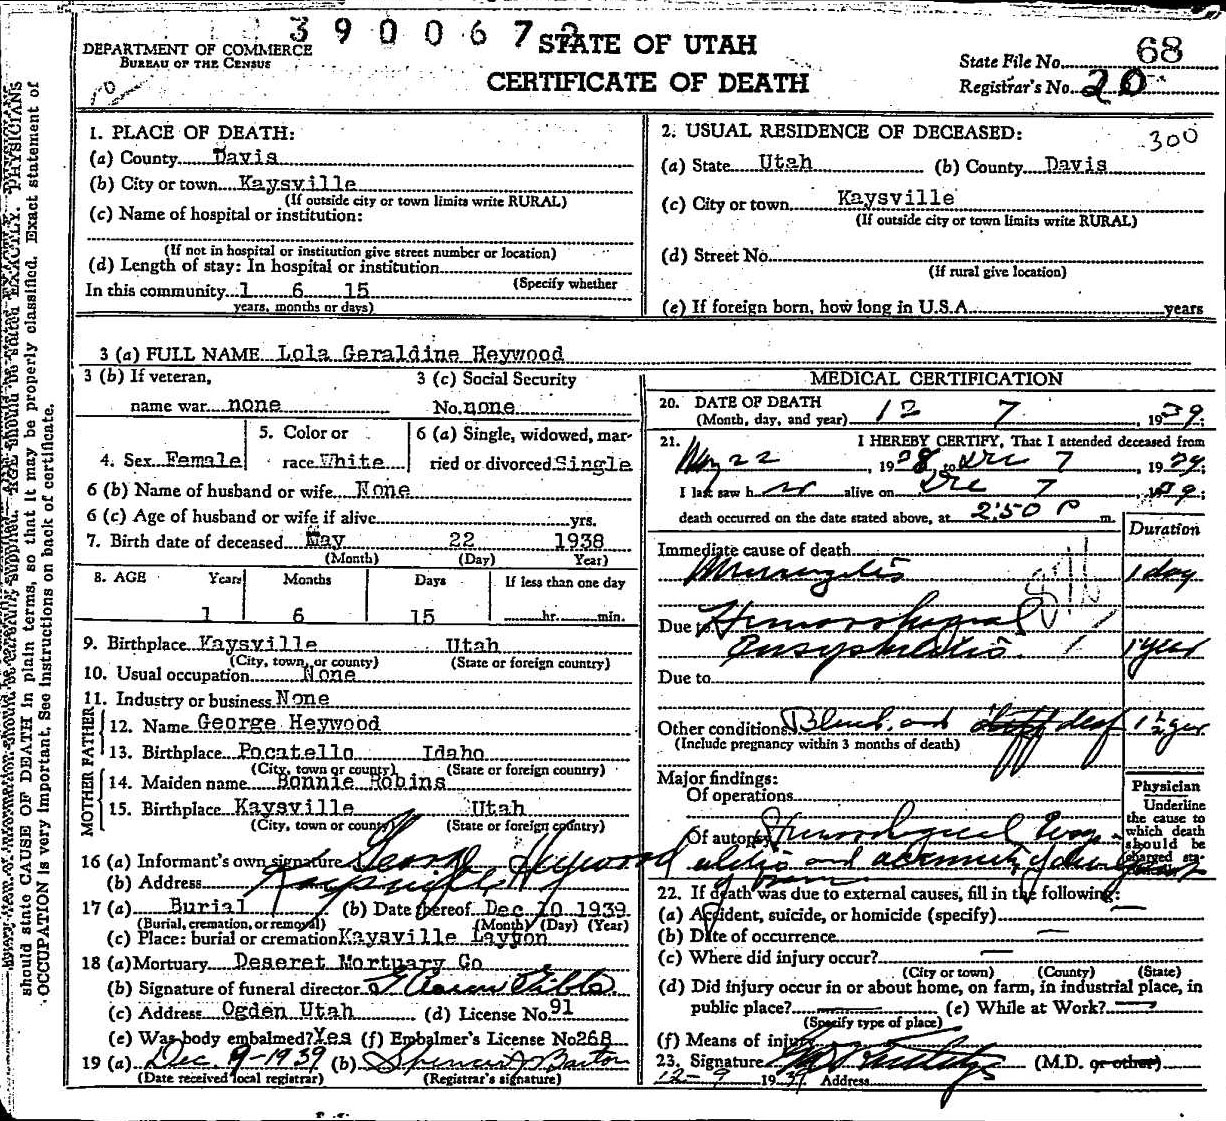 390067
STATE OF UTAH
CERTIFICATE OF DEATH
DEPARTMENT OF COMMERCE
BUREAU OF THE CENSUS
State File No. 68
Registrar's No. 20
1. PLACE OF DEATH:
(a) County Davis
(b) City or town Kaysville
(If outside city or town limits write RURAL)
(c) Name of hospital or institution:
(If not in hospital or institution give street number or location)
(d) Length of stay: In hospital or institution
(Specify whether
In this community 1 6 15
years, months or days)
2. USUAL RESIDENCE OF DECEASED:
300
(a) State Utah (b) County Davis
(c) City or town Kaysville
(If outside city or town limits write RURAL)
(d) Street No.
(If rural give location)
(e) If foreign born, how long in U.S.A. years
3 (a) FULL NAME Lola Geraldine Heywood
3 (b) If veteran, name war none
3 (c) Social Security No. none
4. Sex Female
5. Color or race White
6 (a) Single, widowed, married or divorced Single
6 (b) Name of husband or wife None
6 (c) Age of husband or wife if alive yrs.
7. Birth date of deceased May 22 1938
(Month) (Day) Year)
8. AGE Years Months Days If less than one day
1 6 15 hr. min.
9. Birthplace Kaysville Utah
(City, town, or county) (State or foreign country)
10. Usual occupation None
11. Industry or business None
FATHER
12. Name George Heywood
13. Birthplace Pocatello Idaho
(City, town or county) (State or foreign country)
MOTHER
14. Maiden name Bonnie Robins
15. Birthplace Kaysville Utah
(City, town or county) (State or foreign country)
16 (a) Informant's own signature George Heywood
(b) Address Kaysville
17 (a) Burial (b) Date thereof Dec 10 1939
(Burial, cremation, or removal) (Month) (Day) (Year)
(c) Place: burial or cremation Kaysville Layton
18 (a) Mortuary Deseret Mortuary Co
(b) Signature of funeral director
(c) Address Ogden Utah (d) License No. 91
(e) Was body embalmed? Yes (f) Embalmer's License No 268
19 (a) Dec. 9-1939 (b) Spencer J Barton
(Date received local registrar) (Registrar's signature)
MEDICAL CERTIFICATION
20. DATE OF DEATH
(Month, day, and year) 12 7, 1939;
21. I HEREBY CERTIFY, That I attended deceased from
May 22, 1938, to Dec 7, 1939
I last saw her alive on Dec 7, 1939;
death occurred on the date stated above, at 2:50 P m.
Duration
Immediate cause of death
1 day
Due to Hemorrhagial
1 year
Due to
Other conditions Blind and deaf 1 1/2 yr
(Include pregnancy within 3 months of death)
Major findings:
Of operations
Of autopsy
Physician
Underline the cause to which death should be charged sta-
22. If death was due to external causes, fill in the following:
(a) Accident, suicide, or homicide (specify)
(b) Date of occurrence
(c) Where did injury occur?
(City or town) (County) (State)
(d) Did injury occur in or about home, on farm, in industrial place, in
public place? (e) While at Work?
(Specify type of place)
(f) Means of injury
23. Signature (M.D. or other)
12-9 1939 Address
should state CAUSE OF DEATH in plain terms, so that it may be properly classified. Exact statement of
OCCUPATION is very important. See instructions on back of certificate.